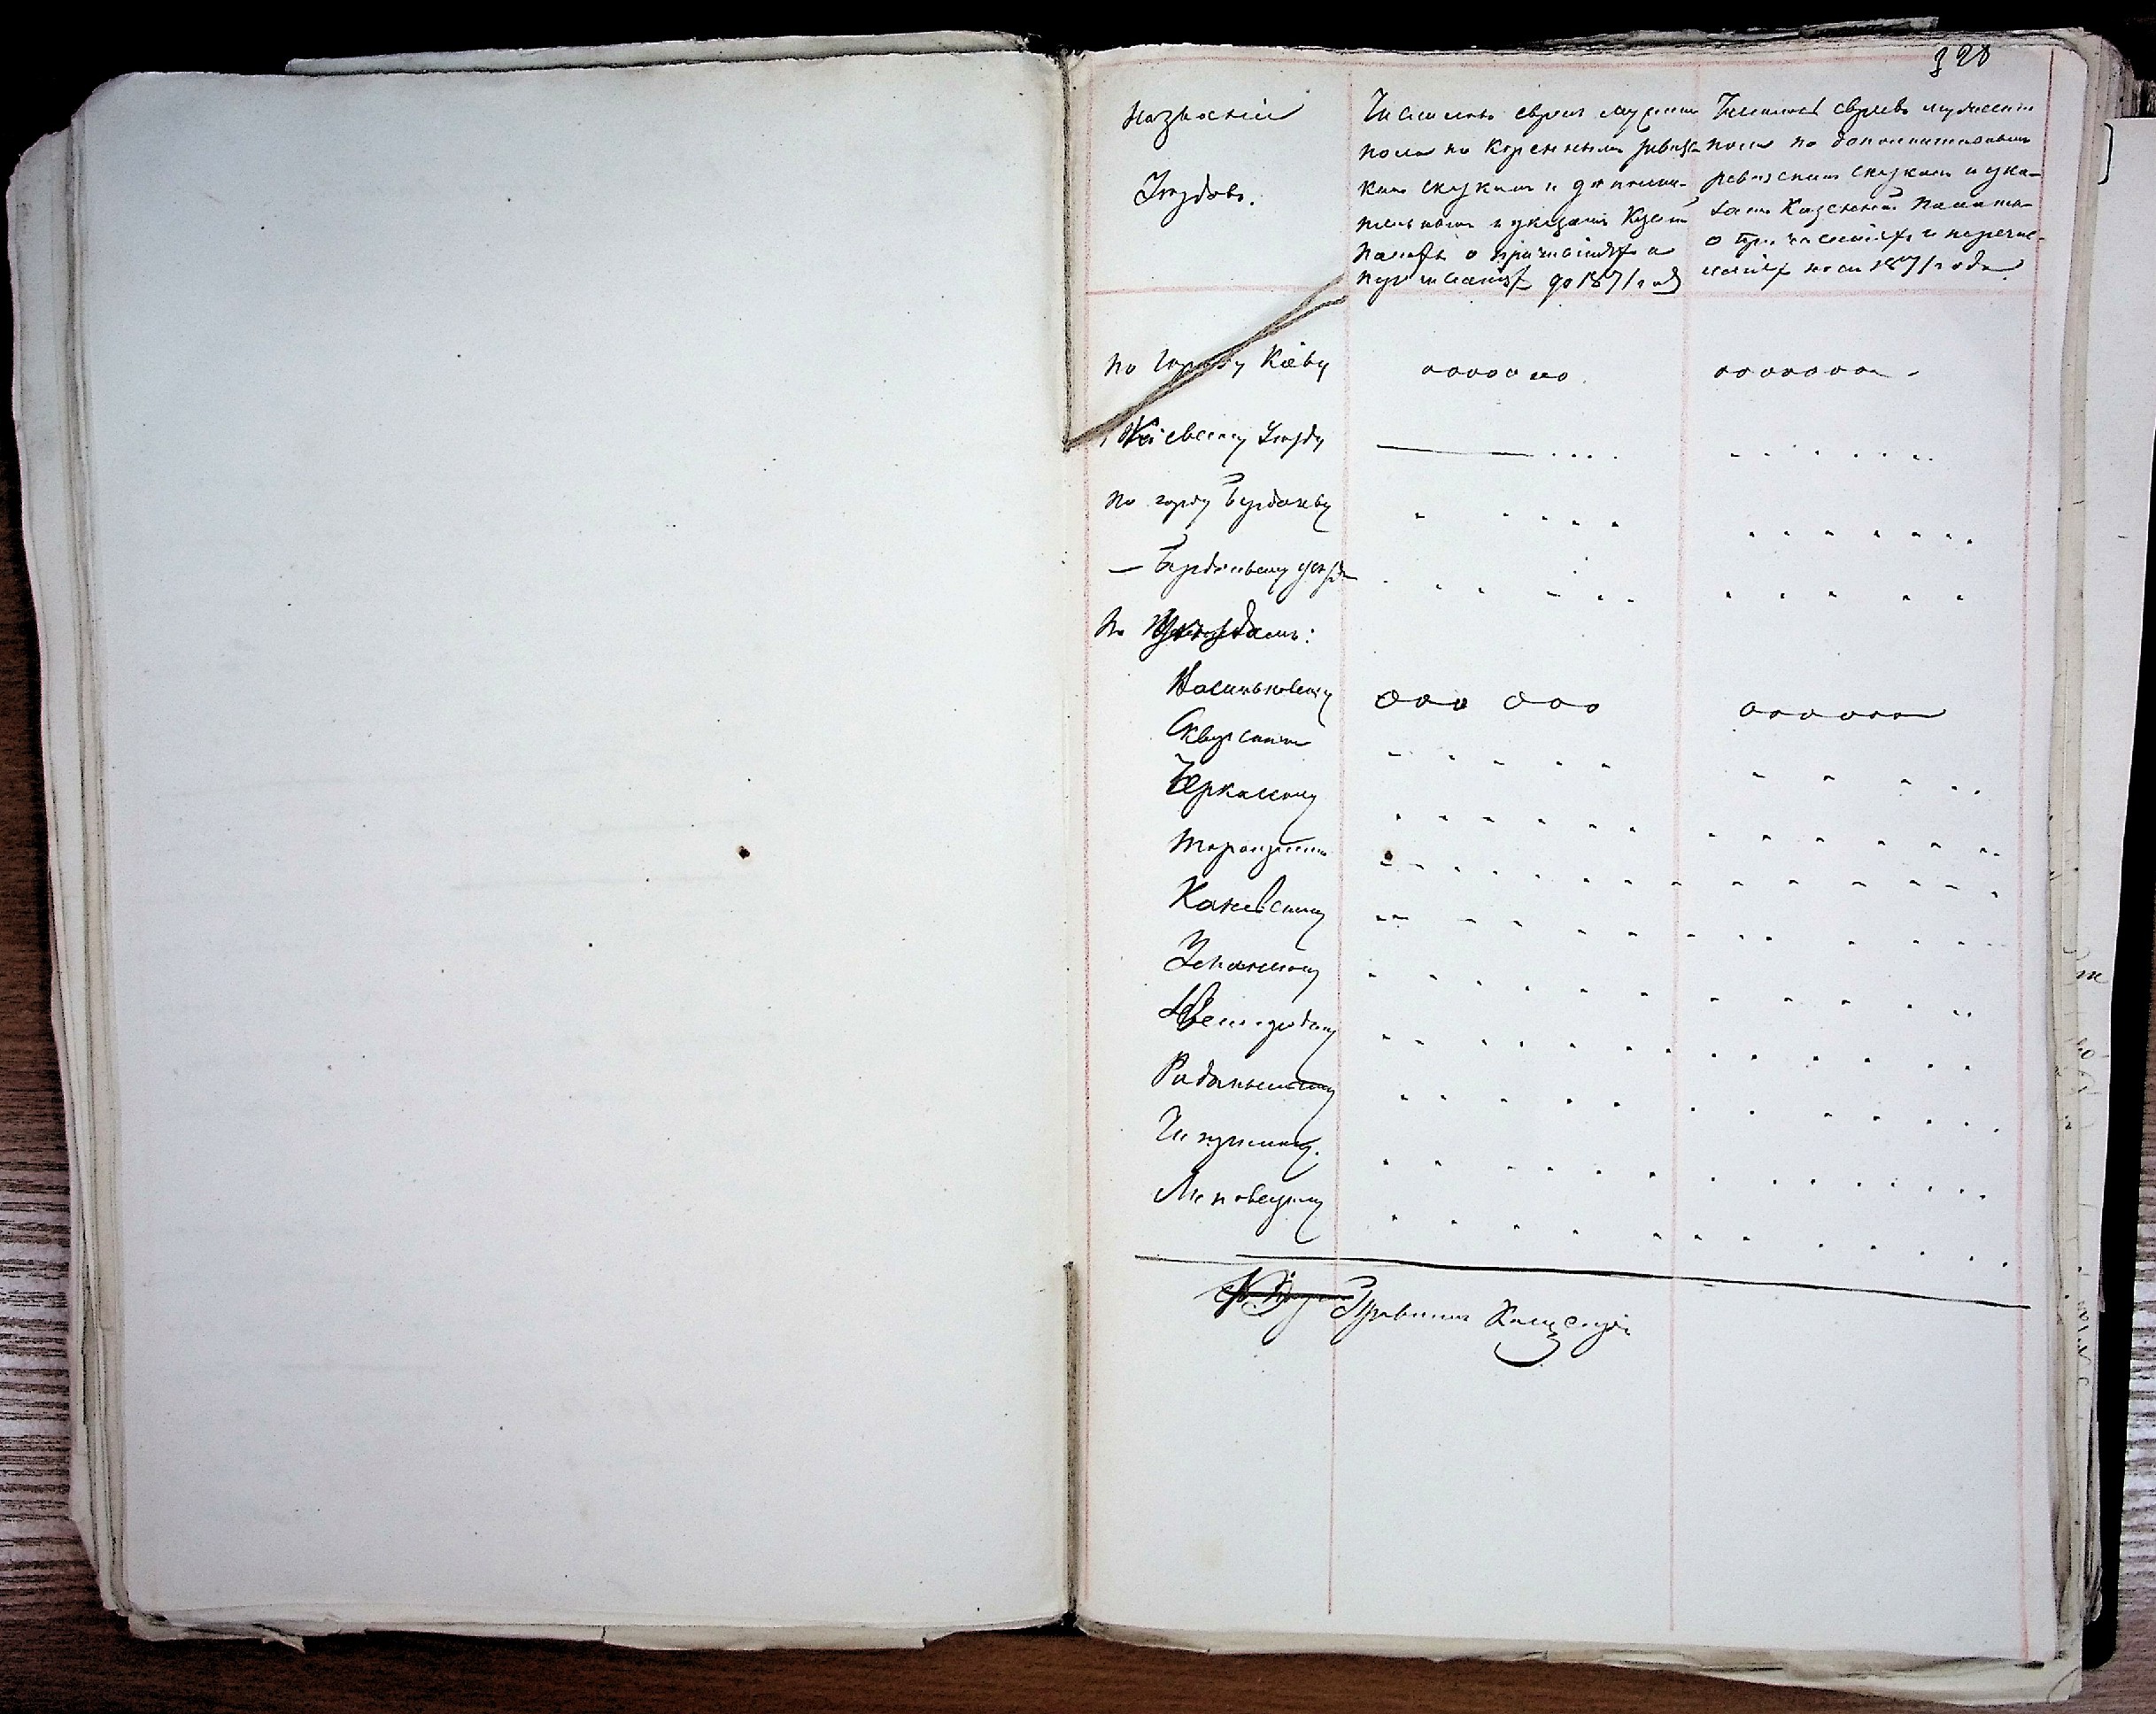 328
Названіе
Уѣздовъ.
Численность евреевъ мужскаго
пола по кореннымъ ревиз-
кимъ сказкамъ и дополни-
тельнымъ и указамъ Казен
Палаты о причисленіях и
перечисленіях до 1871 год
Численность евреевъ мужскаго
пола по дополнительнымъ
ревизскимъ сказкамъ и ука-
замъ Казенной Палаты
о причисленіях и перечис-
леніях после 1871 года.
по городу Кіеву
Кіевскому Уѣзду
по городу Бердичеву
— Бердичевскому уѣзду
По Уѣздамъ:
Васильковскому
Сквирскому
Черкаскому
Таращанск
Каневскому
Уманскому
Звенигородскому
Радомысльскому
Чигиринскому.
Липовецкому
Правитель Канцеляріи